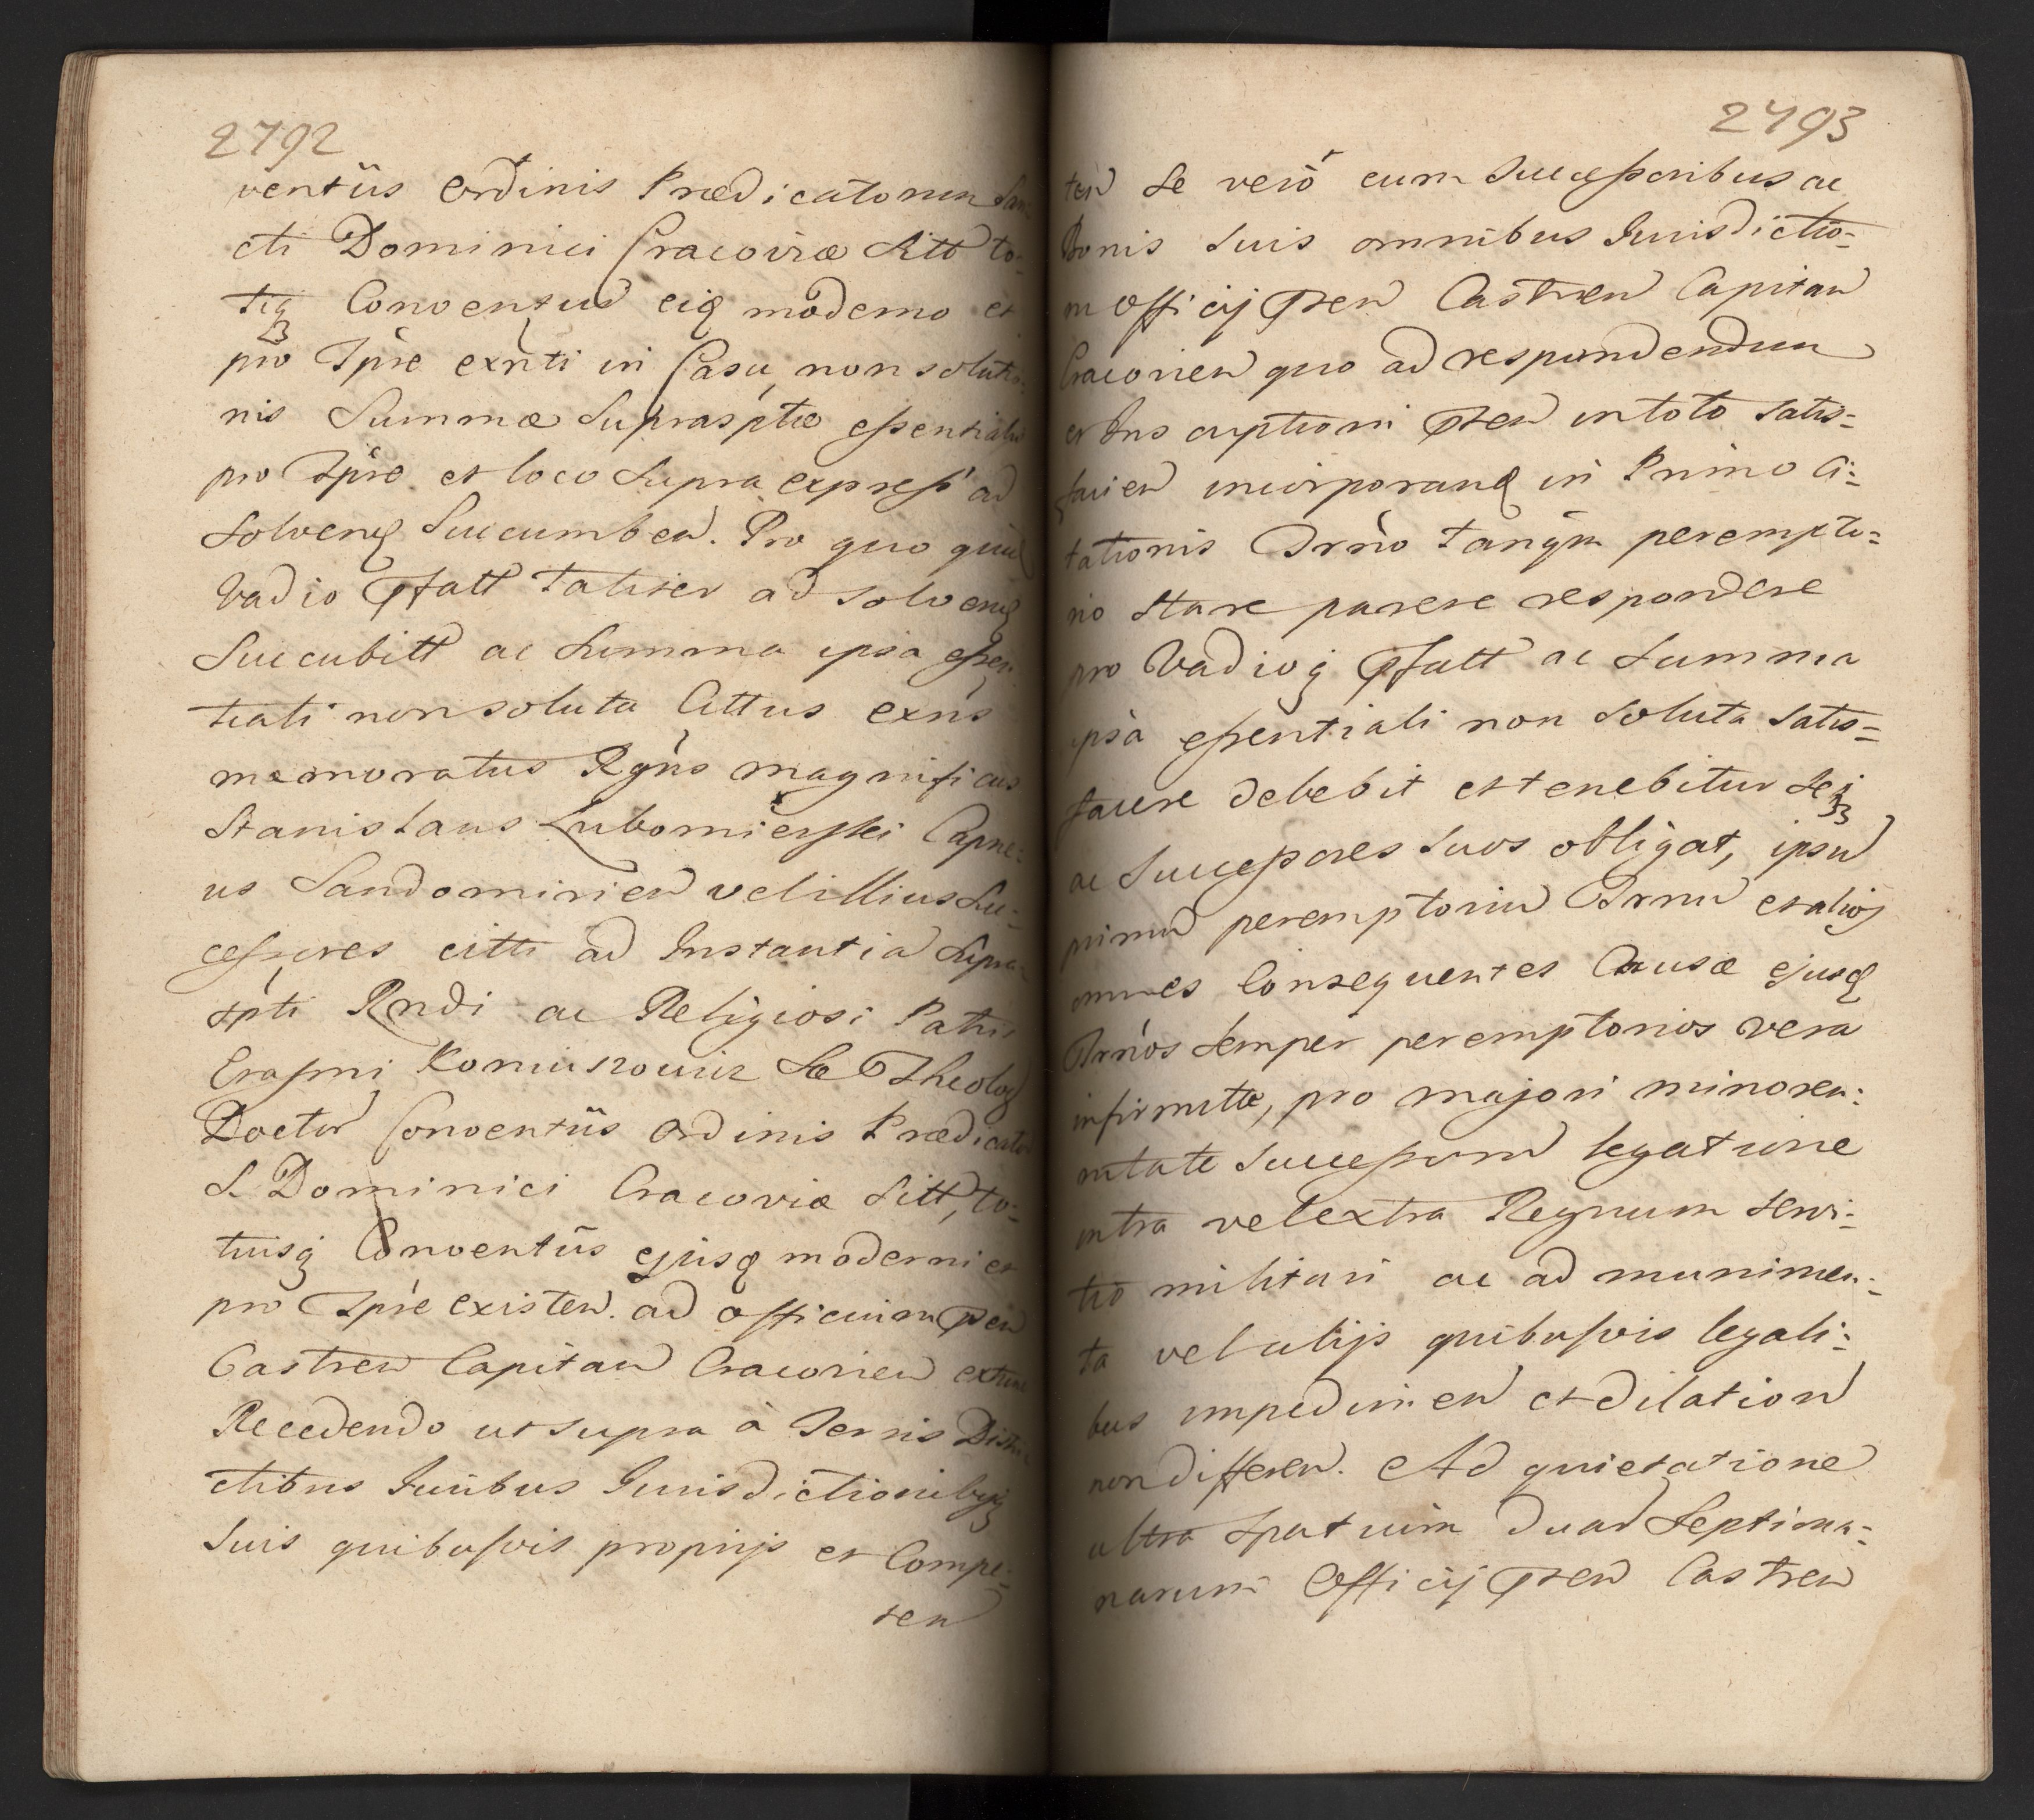 2792
ventûs Ordinis Prædicatorum San
cti Dominici Cracoviæ Sitt to-
tiq Conventus eiq moderno et
pro Tp̃re exñti in Casu non solutio-
nis Summæ Suprasp̃tæ eſsentialis
pro Tp̃re et loco Supra expreſs ad
Solvenq Succumben. Pro quo quiq
Vadio P̃fatt taliter ad solvenq
Succubitt ac Summa ipsa eſsen
tiali non soluta Cittus exñs
memoratus Rgñs magnificus
Stanislaus Lubomierſki Capne-
us Sandomirien vel illius Su-
ceſsores citti ad Instantia Supra
sp̃ti Rndi ac Religiosi Patris
Eraſmi Komuszowicz Sæ Theolog
Doctor Conventûs Ordinis Prædicato
S. Dominici Cracoviæ Sitt, to-
tiusq Conventûs ejusq moderni et
pro Tp̃re existen. ad Officium P̃sen
Castren Capitan Cracovien extunc
Recedendo ut supra à Terris Distri
ctibus Juribus Jurisdictionibusq
Suis quibuſvis proprijs et Compe-
ten
2793
ten Se verò cum Succeſsoribus ac
Bonis Suis omnibus Jurisdictio-
ni Officij P̃sen Castren Capitan
Cracovien quo ad respondendum
et Inscriptioni P̃sen in toto Satis-
facien incorporanq in Primo Ci-
tationis Trño tanq̃m perempto-
rio Stare parere respondere
pro Vadioq P̃fatt ac Summa
ipsà eſsentiali non Soluta Satis-
facere debebit et tenebitur Seq
ac Succeſsores Suos obligat, ipsu
primu peremptoriu Trnu et alios
omnes Consequentes Causæ ejusq
Trños Semper peremptorios vera
infirmitte, pro majori minoren-
nitate Succeſsorũ legatione
intra vel extra Regnum Servi-
tio militari ac ad munimen-
ta vel alijs quibuſvis legali-
bus impedimen et dilation
non differen. Ad quietatione
ultra Spatium duar Septima-
narum Officij P̃sen Castren